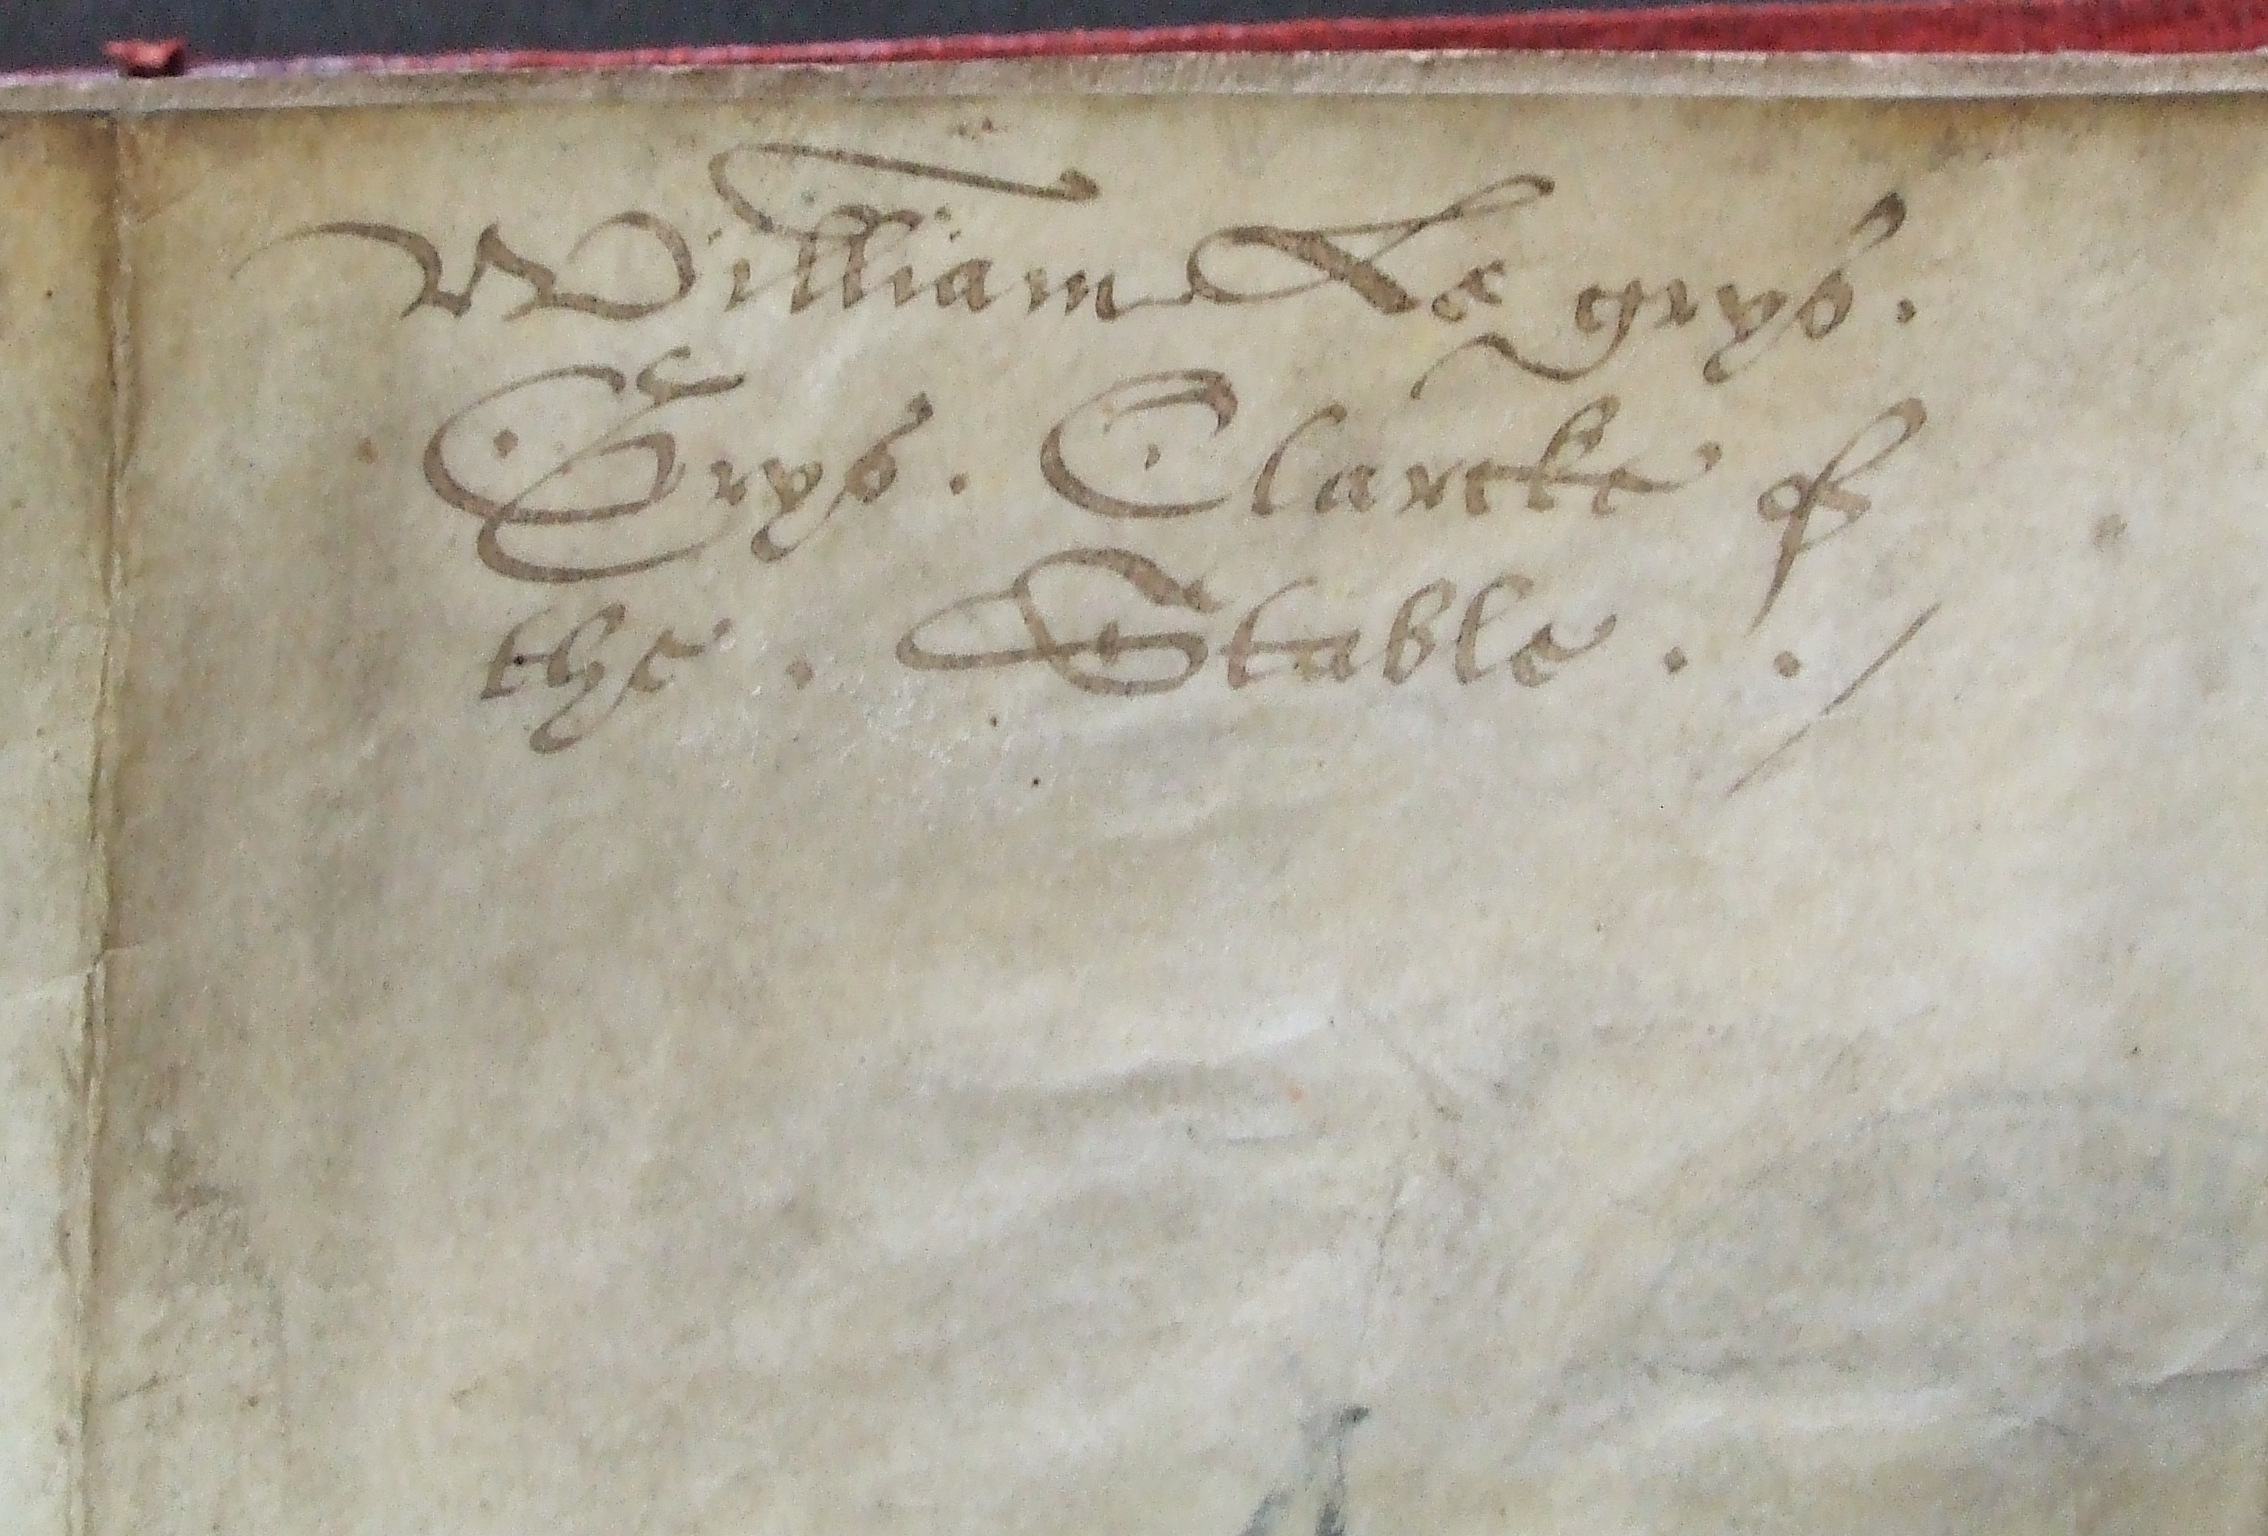 William Le grys.
. Grys. Clarcke of
the . Stable . . /